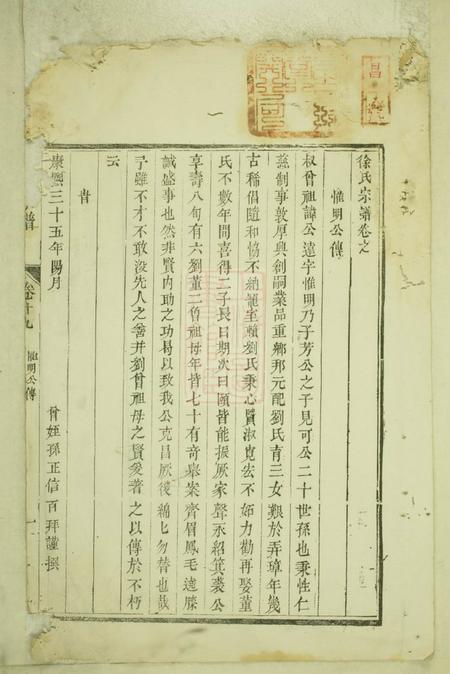 徐氏宗譜卷之
惟明公傳
叔曾祖諱公遠字惟明乃子芳公之子見可公二十世孫也秉性仁
慈制事敦厚典創嗣業品重鄉邦元配劉氏育三女艱於弄璋年幾
古稀倡隨和協不納篭室賴劉氏秉心賢淑寬宏不妬力勸再娶董
氏不數年間喜得二子長曰期次曰頤皆能振厥家聲永紹箕裘公
享壽八旬有六劉董二曾祖母年皆七十有奇舉案齊眉鳳毛遶膝
誠盛事也然非賢內助之功曷以致我公克昌厥後綿匕勿替也哉
予雖不才不敢沒先人之善并劉曾祖母之賢爰著之以傳於不朽
云
旹
康熙三十五年陽月
曾姪孫正信百拜謹撰
譜
卷十九
惟明公傳
一
昌